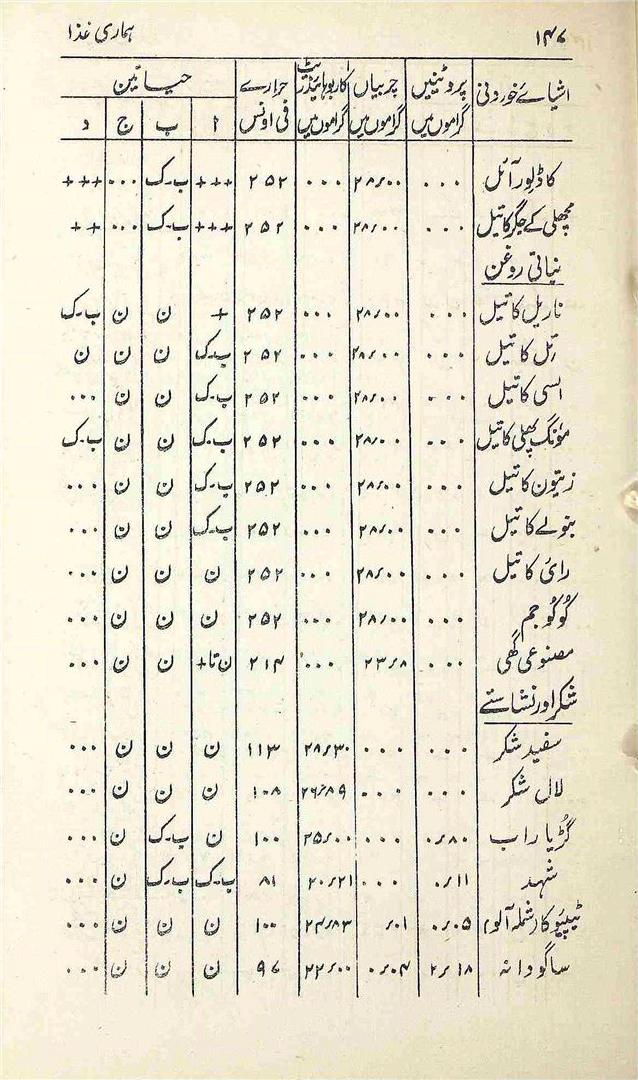 ۱۴۷ ہماری غذا
اشیائے خوردنی پروٹینیں گراموں میں چربیاں گراموں میں کاربوہائیڈریٹ گراموں میں حرارے فی اونس حیاتین
ا ب ج د
کاڈلِور آئل ... ۲۸٫۰۰ ... ۲۵۲ +++ ب۔ک ... +++
مچھلی کے جگر کا تیل ... ۲۸٫۰۰ ... ۲۵۲ +++ ب۔ک ... ++
نباتی روغن
ناریل کا تیل ... ۲۸٫۰۰ ... ۲۵۲ + ن ن ب۔ک
تِل کا تیل ... ۲۸٫۰۰ ... ۲۵۲ ب۔ک ن ن ن
السی کا تیل ... ۲۸٫۰۰ ... ۲۵۲ ب۔ک ن ن ...
مونگ پھلی کا تیل ... ۲۸٫۰۰ ... ۲۵۲ ب۔ک ن ن ب۔ک
زیتون کا تیل ... ۲۸٫۰۰ ... ۲۵۲ ب۔ک ن ن ...
بنولے کا تیل ... ۲۸٫۰۰ ... ۲۵۲ ب۔ک ن ن ...
رائی کا تیل ... ۲۸٫۰۰ ... ۲۵۲ ن ن ن ...
کُوکُو جم ... ۲۸٫۰۰ ... ۲۵۲ ن ن ن ...
مصنوعی گھی ... ۲۳٫۸ ... ۲۱۴ ن تا+ ن ن ...
شکر اور نشاستے
سفید شکر ... ... ۲۸٫۳۰ ۱۱۳ ن ن ن ...
لال شکر ... ... ۲۶٫۸۹ ۱۰۸ ن ن ن ...
گڑ یا راب ۰٫۸۰ ... ۲۵٫۰۰ ۱۰۰ ن ب۔ک ن ...
شہد ۰٫۱۱ ... ۲۰٫۲۱ ۸۱ ب۔ک ب۔ک ن ...
ٹیپیوکا (شملہ آلو) ۰٫۰۵ ٫۰۱ ۲۴٫۸۳ ۱۰۰ ن ن ن ...
ساگودانہ ۲٫۱۸ ۰٫۰۴ ۲۲٫۰۰ ۹۶ ن ن ن ...